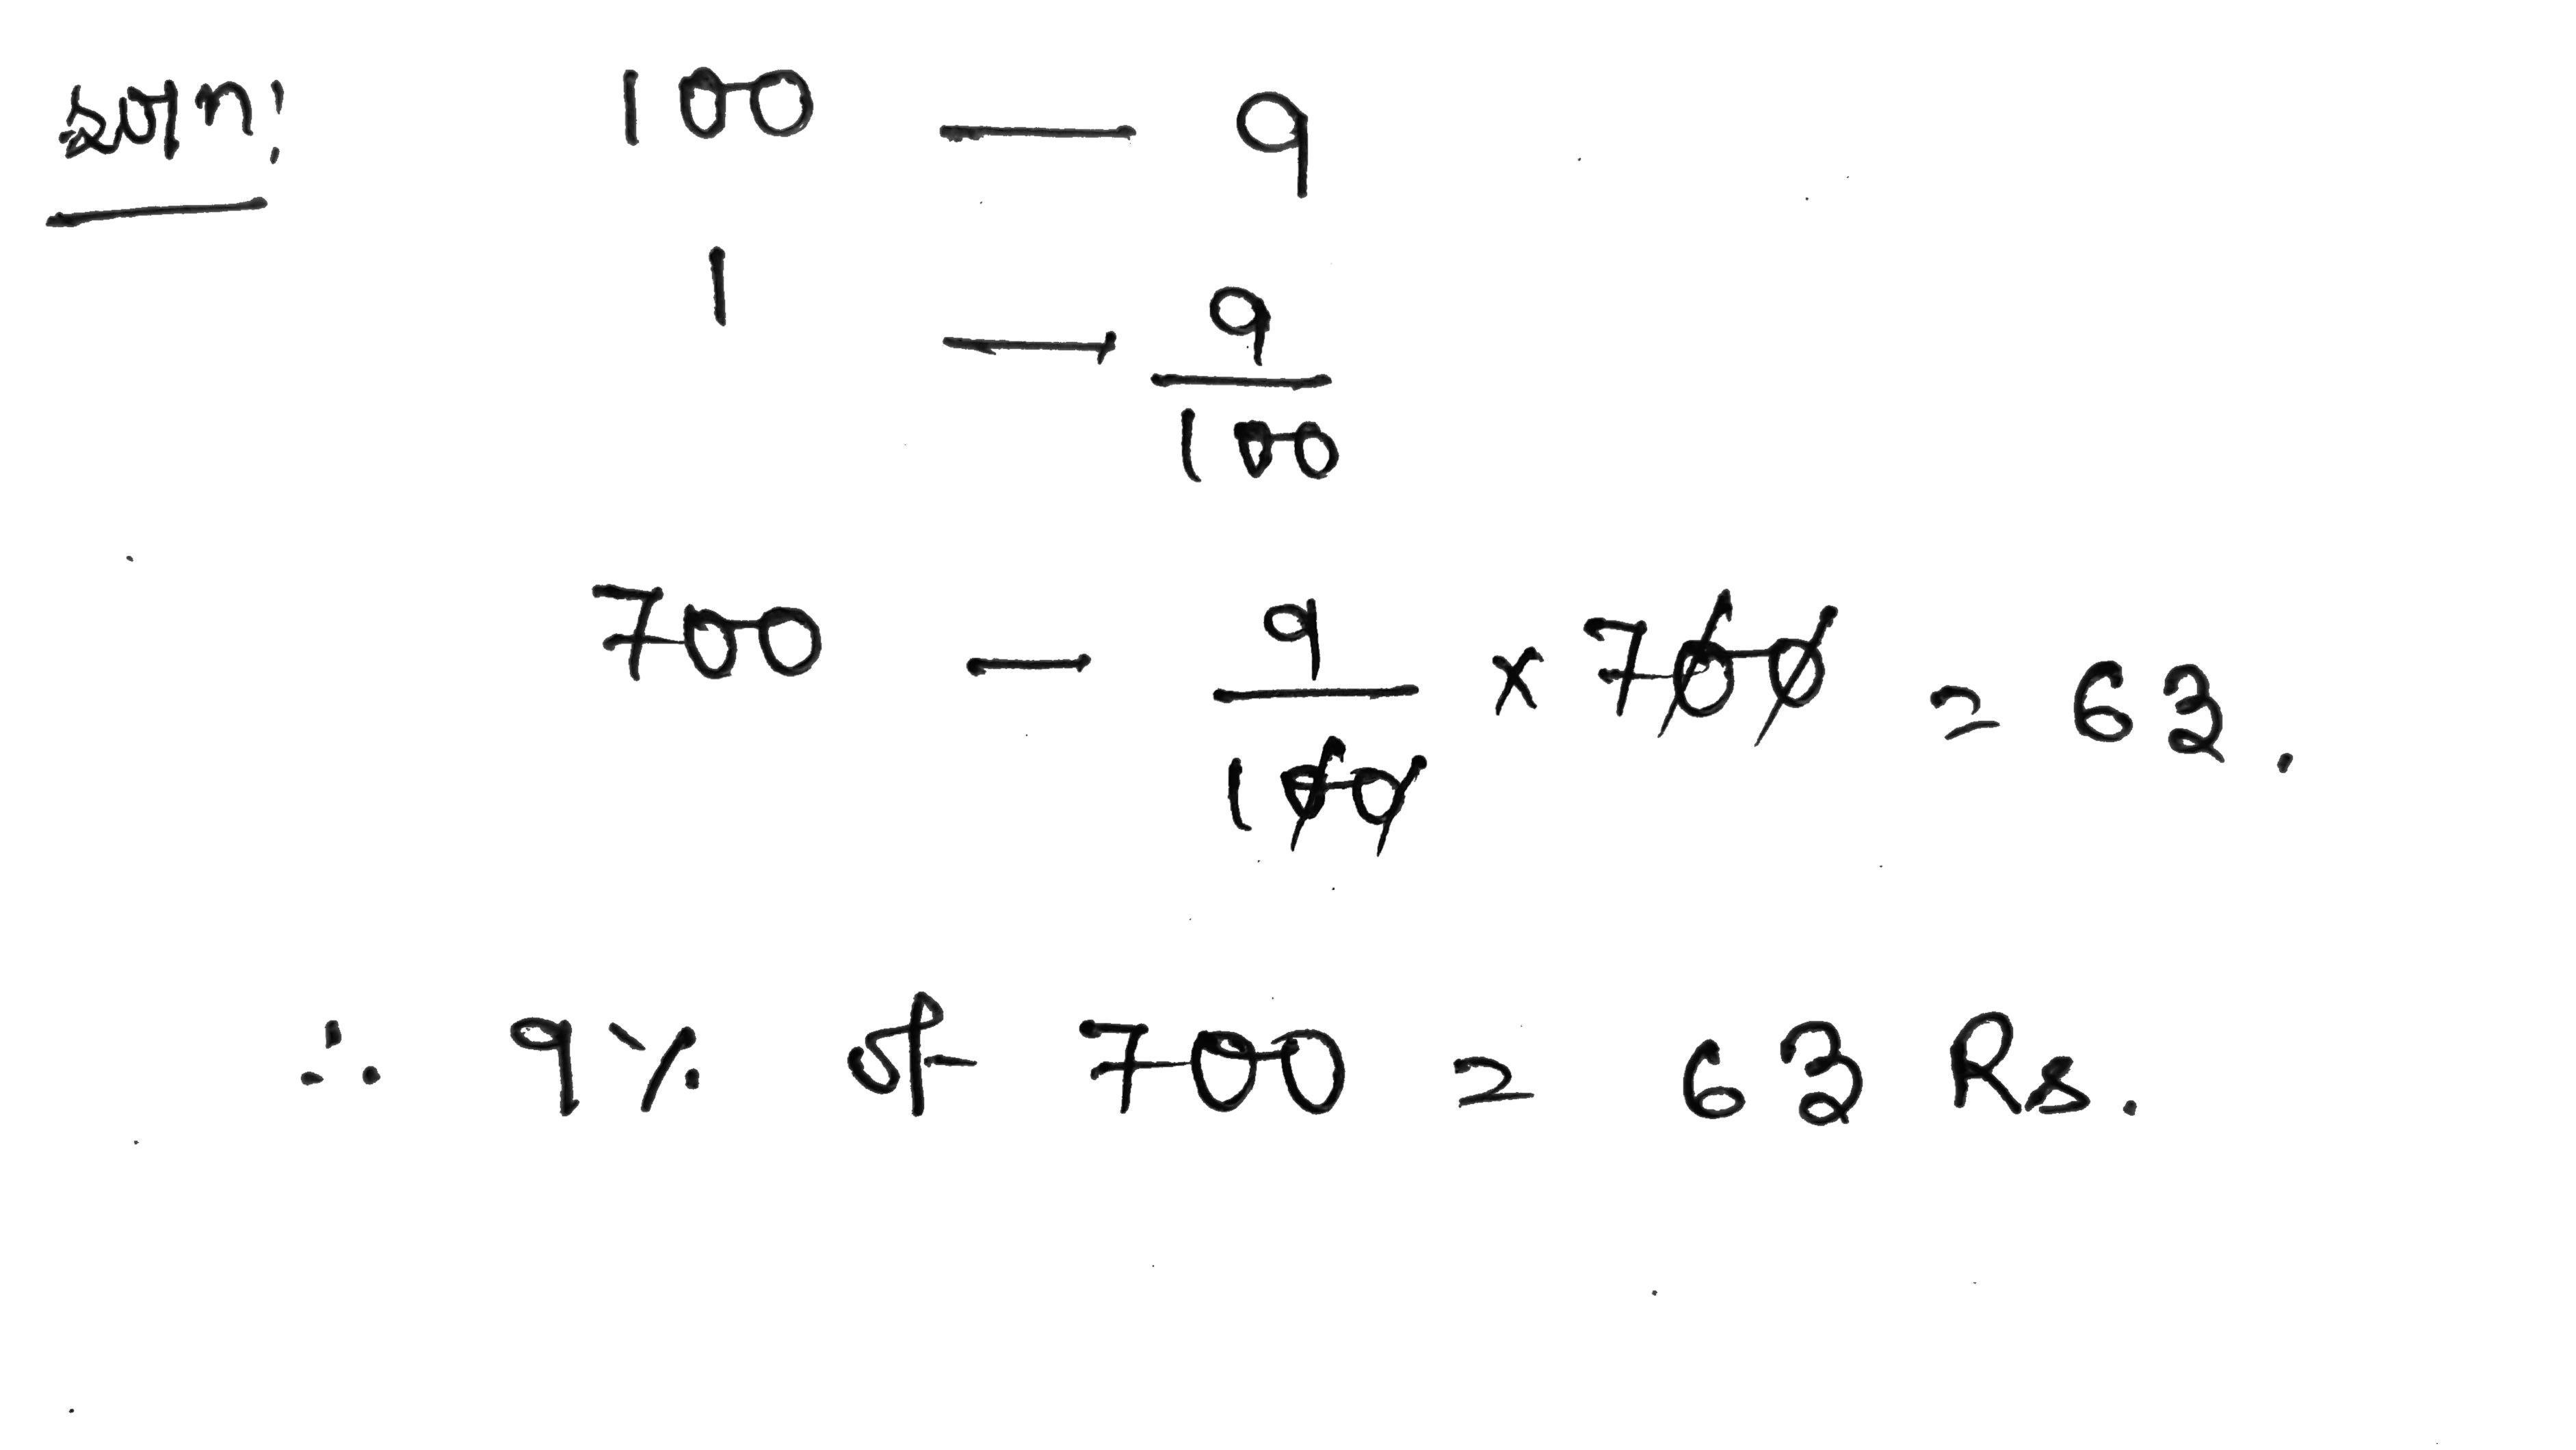 Soln:
100 — 9
1 — 9/100
700 — 9/100 × 700 = 63.
∴ 9% of 700 = 63 Rs.